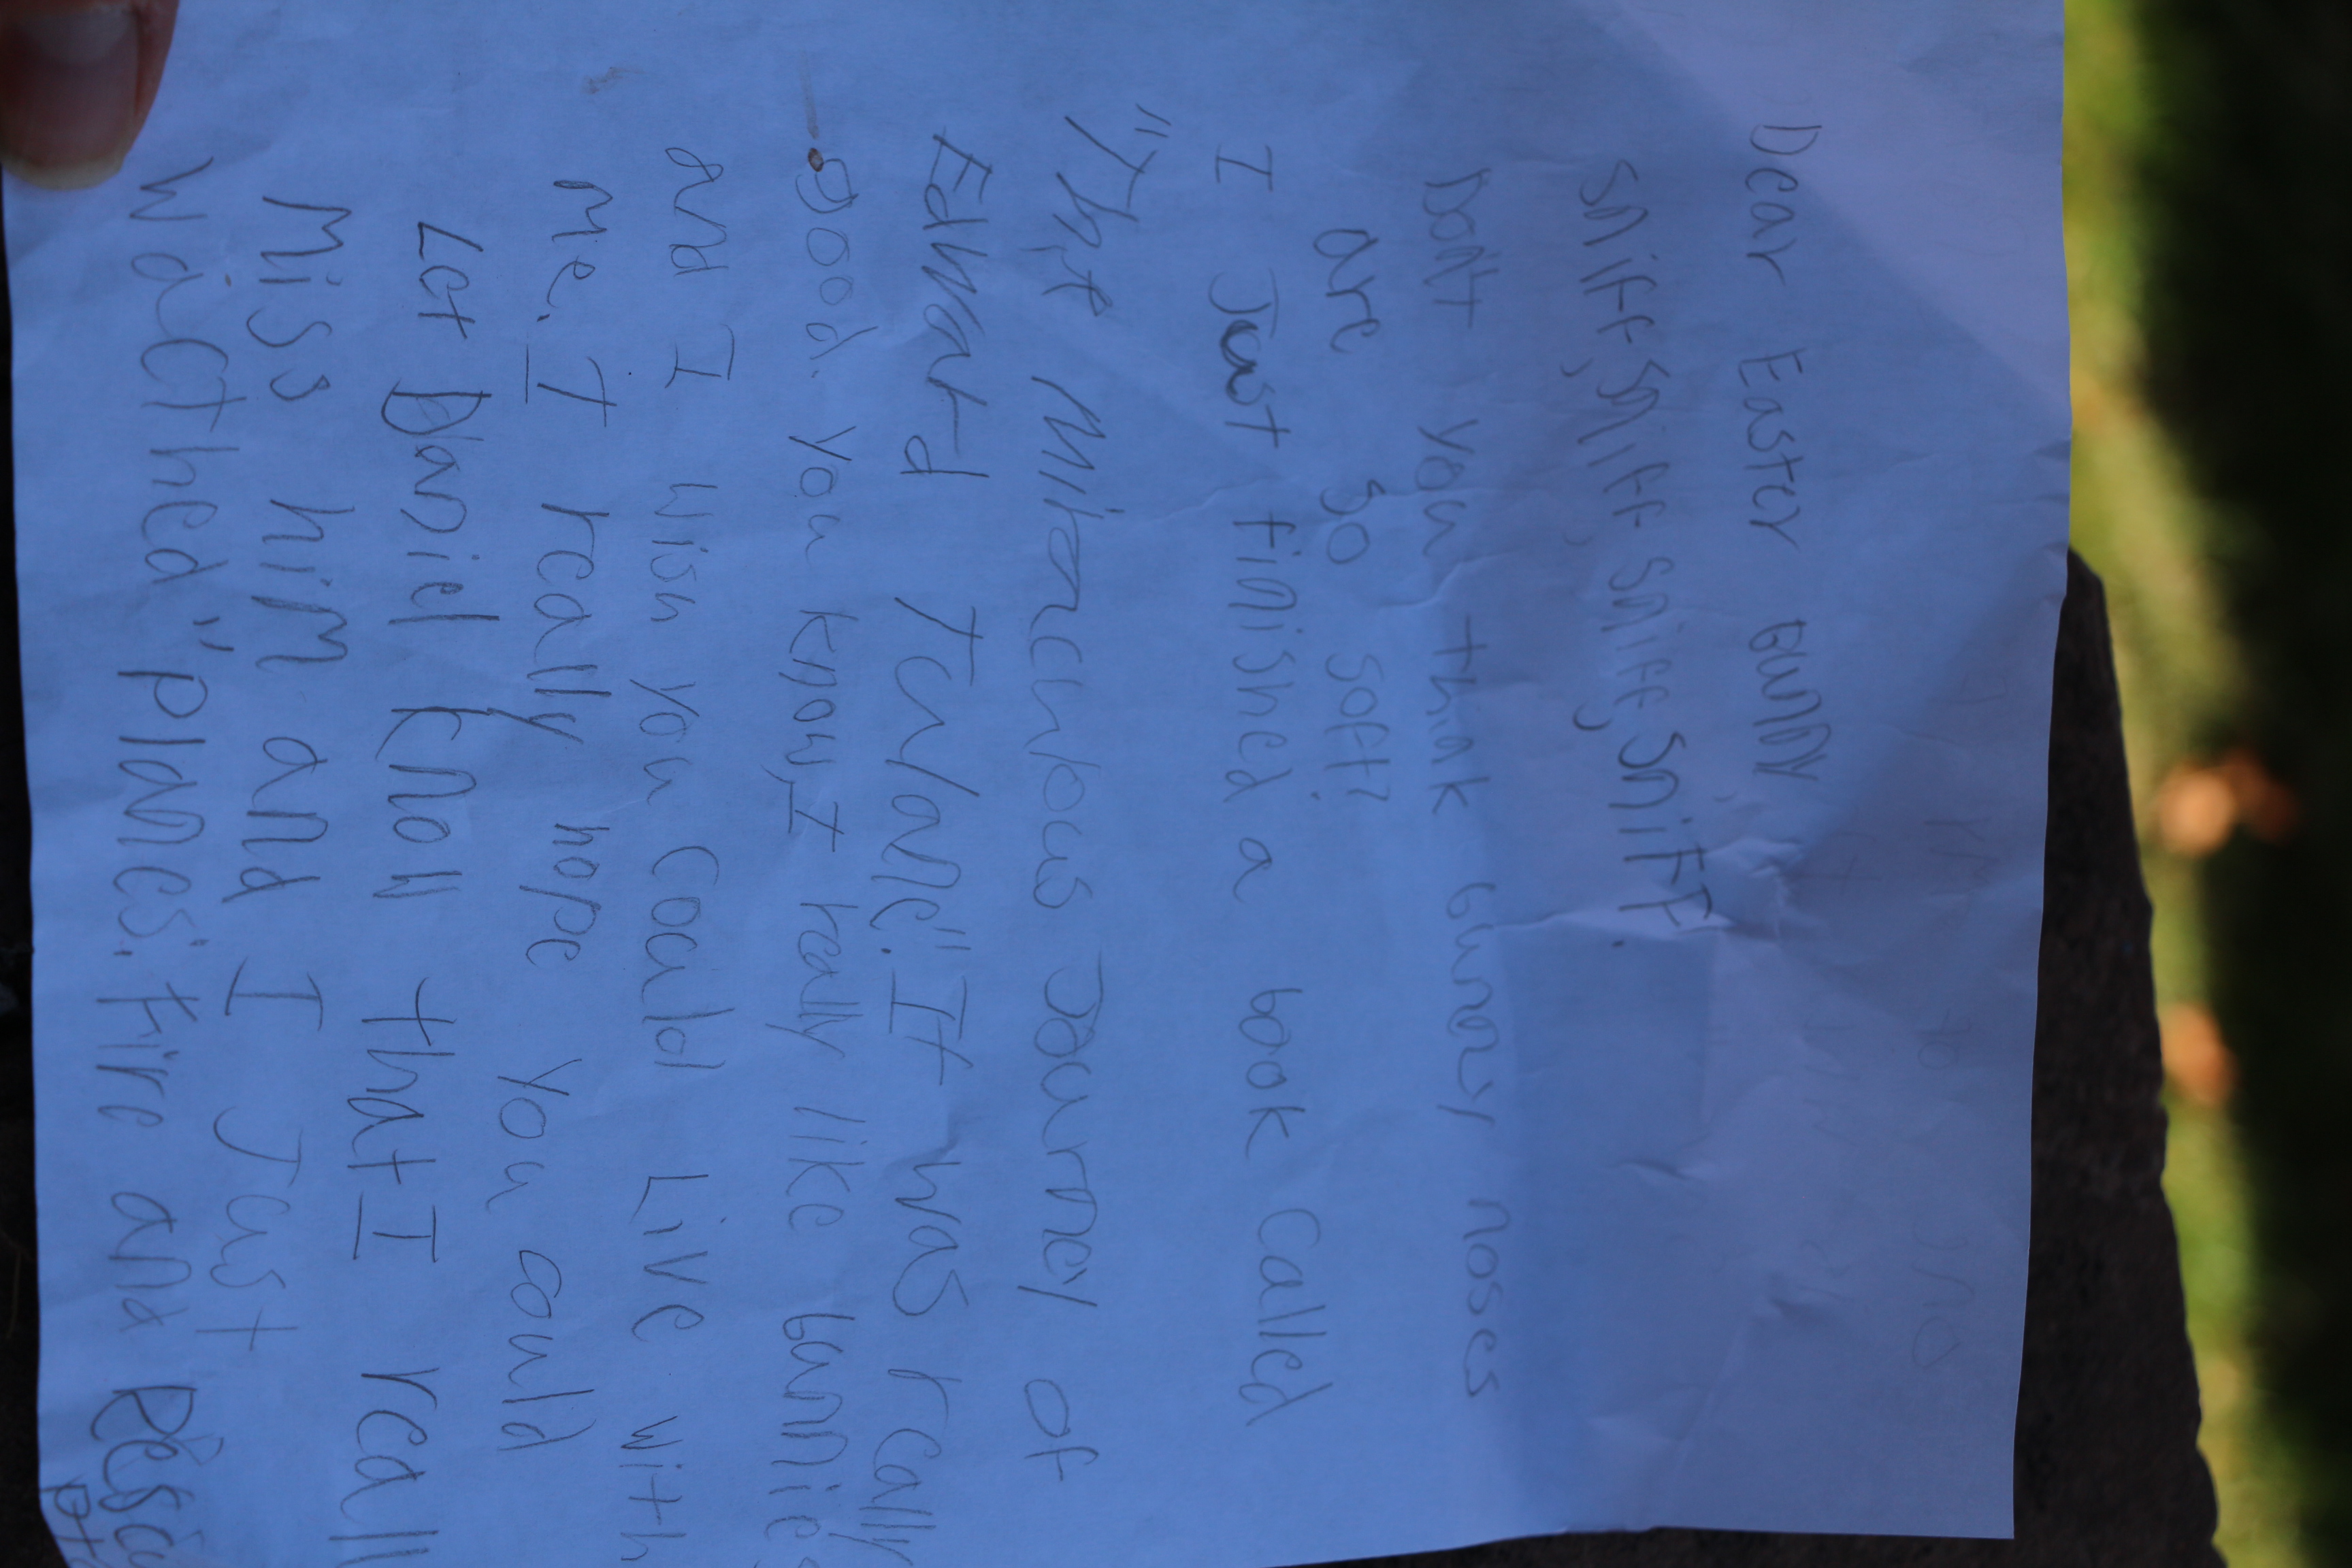 Dear Easter Bunny,
Sniff, Sniff, Sniff, Sniff.
Don't you think bunny noses
are so soft?
I Just finished a book Called
"The Miraculous Journey of
Edward Tulane." It was really
good. you know, I really like bunnies
and I wish you could Live with
me. I really hope you could
Let Daniel know that I reall
Miss him and I Just
watched "planes: Fire and Rescu